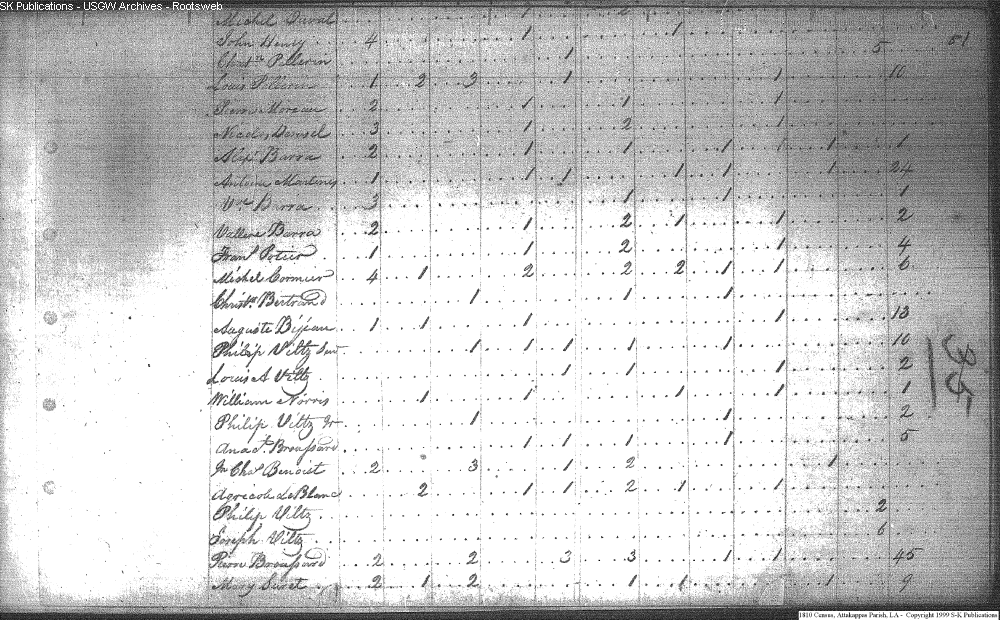 SK Publications - USGW Archives - Rootsweb
Michel Duval 1 2
John Henry 4 1 1 51
Christn Pellerin 1 5
Louis Pellerin 1 2 3 1 1 10
Pierre Moreau 2 1 1 1
3 1 2 1
Alexr Barra 2 1 1 1 1 1 1
Antoine Martines 1 1 1 1 1 1 24
Vve Barra 3 1 1 1
Vallere Barra 2 1 2 1 1 2
Frans Potier 1 1 2 1 4
Michel Cormier 4 1 2 2 2 1 1 6
Christn Bertrand 1 1 1
Auguste Bijeau 1 1 1 1 13
Philip Viltz Senr 1 1 1 1 1 10
Louis A Viltz 1 1 1 2
William Norris 1 1 1 1 1
Philip Viltz Jr 1 1 2
Anact. Broussard 1 1 1 1 5
Jn Chas Benoist 2 3 1 2 1
Agricole LeBlanc 2 1 1 2 1 1
Philip Viltz 2
Joseph Viltz 6
Pierre Broussard 2 2 3 3 1 1 45
Mary Suret 2 1 2 1 1 1 9
35
1810 Census, Attakappas Parish, LA - Copyright 1999 S-K Publications